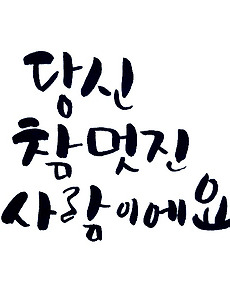 당신
참 멋진
사람이에요